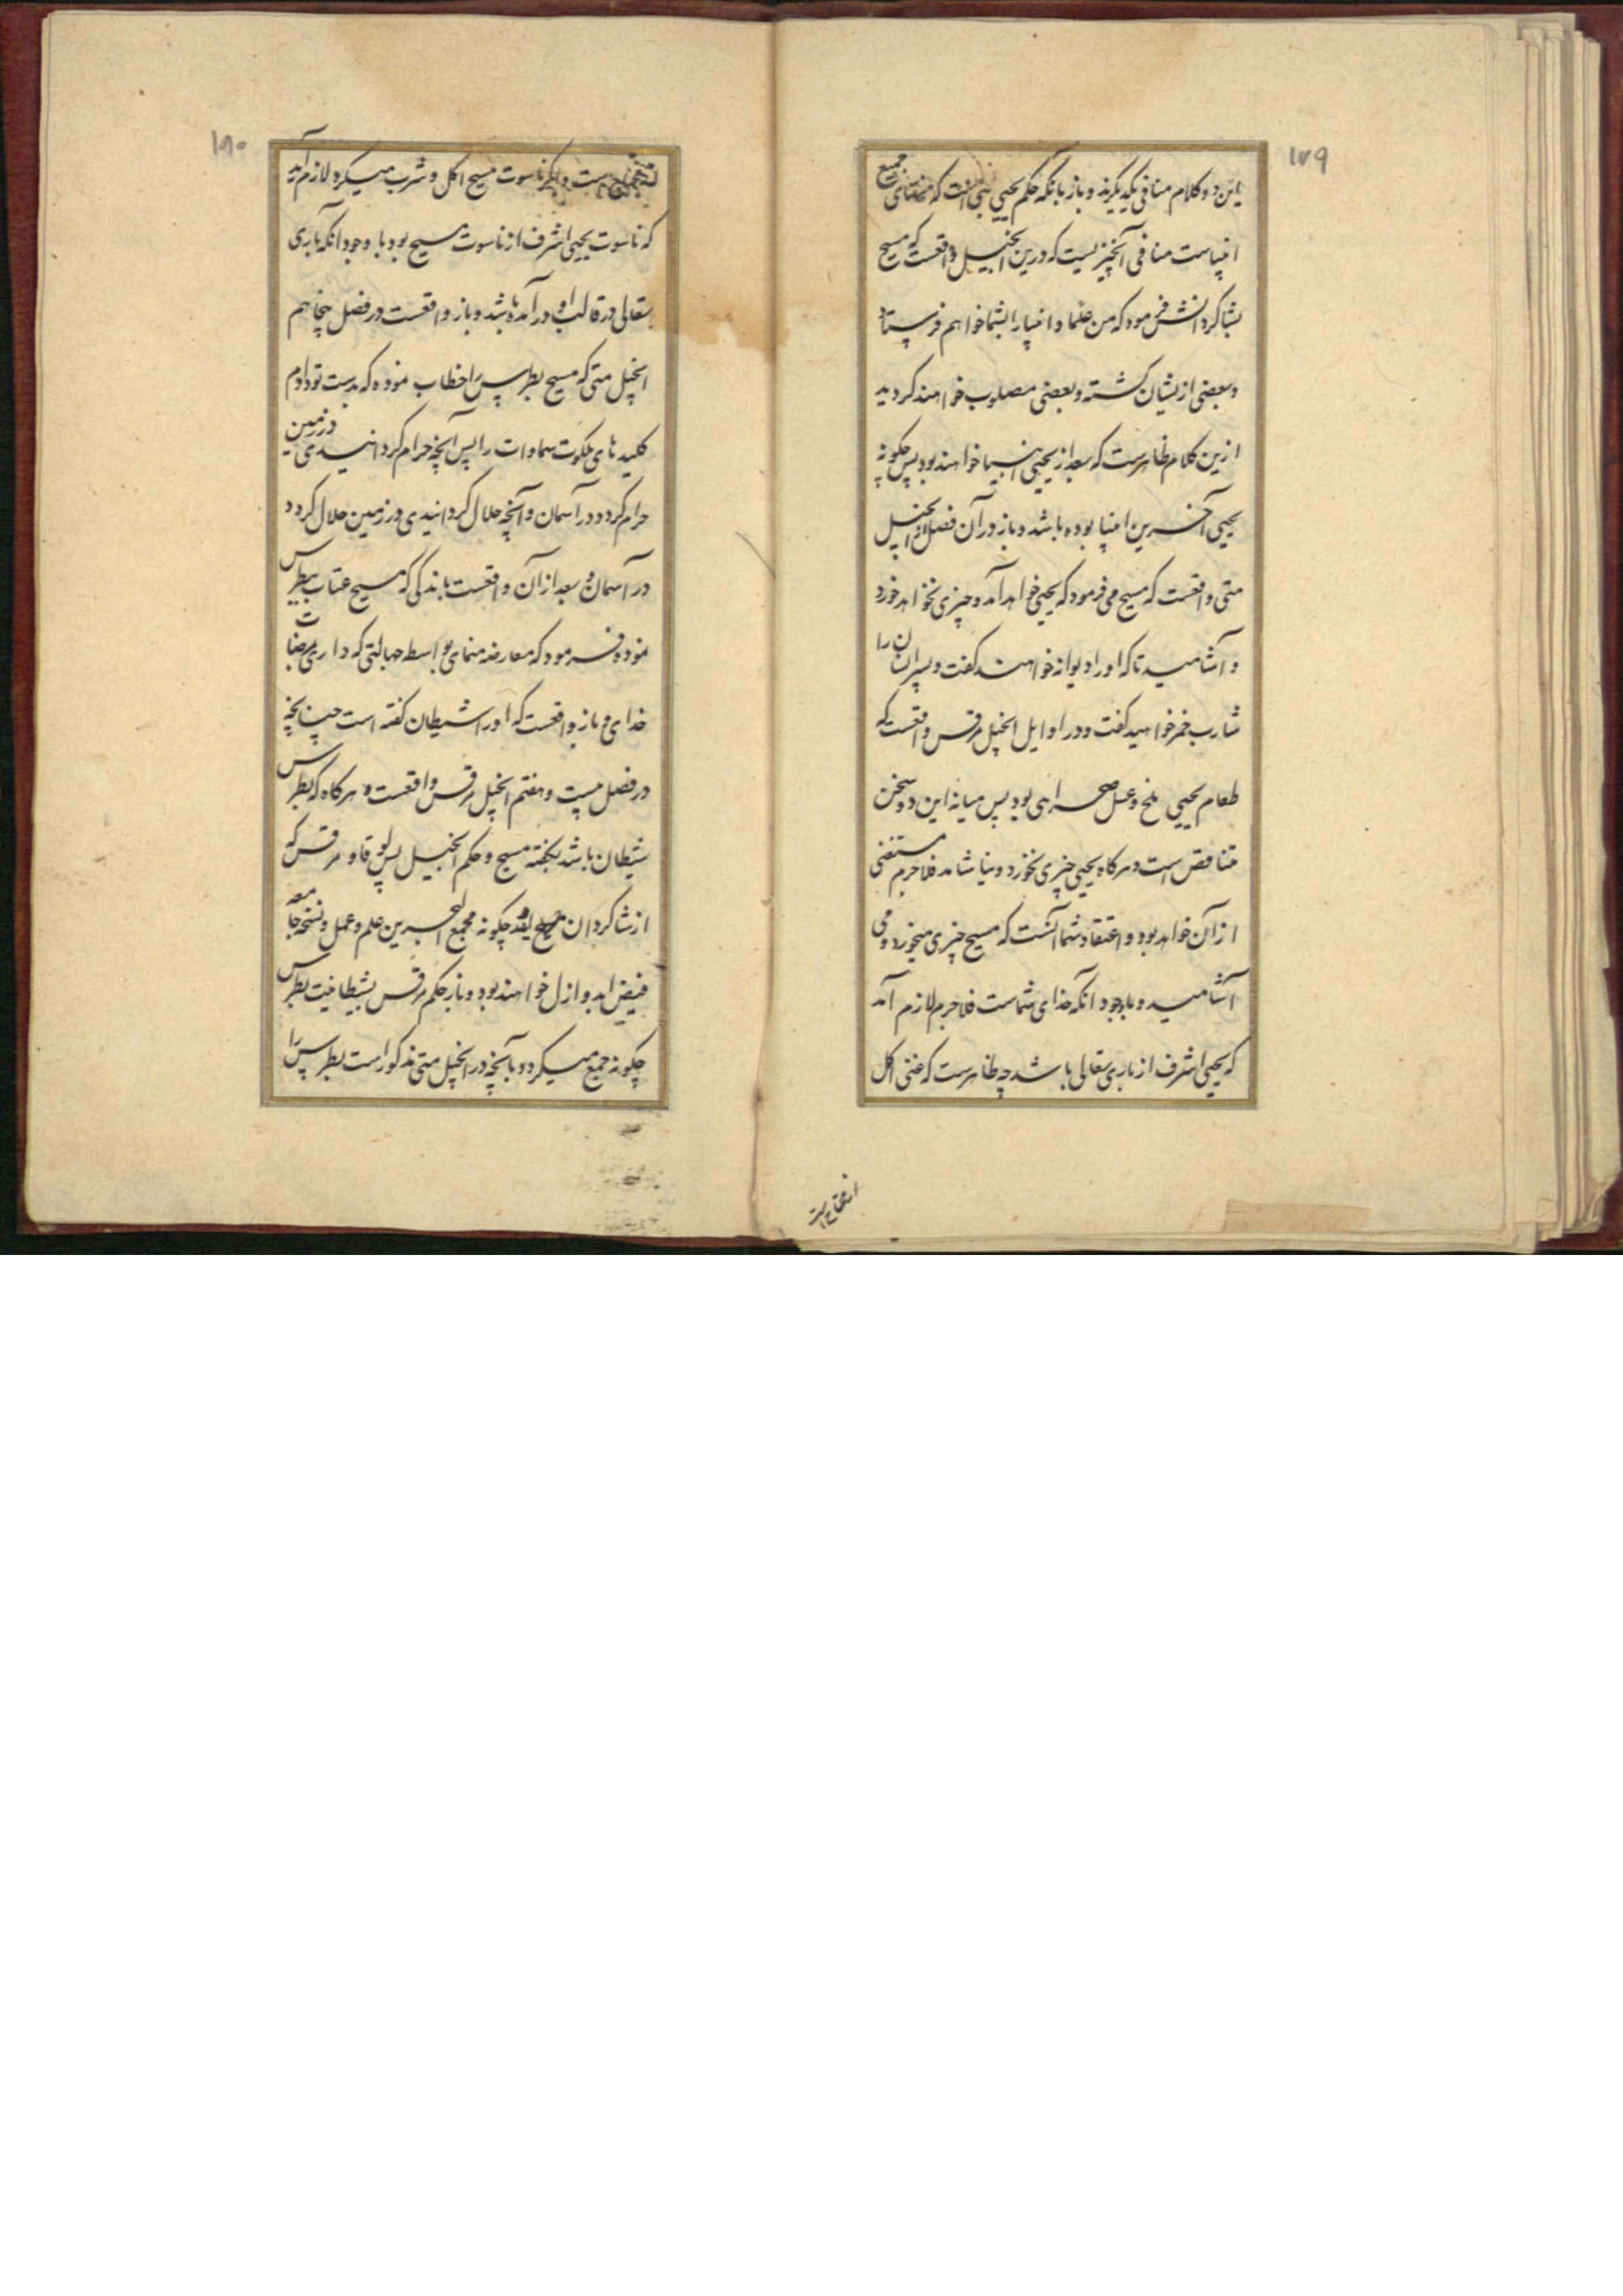 ۱۷۹
این دو کلام منافی یکدیگرند و باز بانکه حکم یحیی نبی است که منتهای جمیع
انبیاست منافی آنچیز نیست که درین انجیل واقعست که مسیح
بشاکردانش فرمود که من علما و انبیا را بشما خواهم فرستاد
و بعضی از یشان کشته و بعضی مصلوب خواهند کردید
ازین کلام ظاهرست که بعد از یحیی انبیا خواهند بود پس چکونه
یحیی آخرین انبیا بوده باشد و باز در آن فصل از انجیل
متی واقعست که مسیح می فرمود که یحیی خواهد آمد و چیزی نخواهد خورد
و آشامید تا که او را دیوانه خواهند کفت و پسر انسان را
شارب خمر خواهید کفت و در اوایل انجیل مرقس واقعست که
طعام یحیی ملخ و عسل صحرایی بود پس میانه این دو سخن
تناقض است و هرکاه یحیی چیزی نخورد و نیاشامد فلاجرم مستغنی
از آن خواهد بود و اعتقاد شما آنست که مسیح چیزی میخورد و می
آشامید و باوجود آنکه خدای شماست فلاجرم لازم آمد
که یحیی اشرف از باری تعالی باشد چه ظاهرست که غنی اکل
۱۸۰
است و اکر ناسوت مسیح اکل و شرب میکرد لازم آمد
که ناسوت یحیی اشرف از ناسوت مسیح بود با وجود آنکه باری
تعالی در قالب او در آمده باشد و باز واقعست در فصل پنجاهم
انجیل متی که مسیح بطرس را خطاب نموده که بدست تو دادم
کلید های ملکوت سماوات را پس آنچه حرام کردانیدی در زمین
حرام کردد در آسمان و آنچه حلال کردانیدی در زمین حلال کردد
در آسمان و بعد از آن واقعست باندکی که مسیح عتاب بپطرس
نموده فرمود که معارضه منمای بواسطه جهالتی که داری برضات
خدای و باز واقعست که او را شیطان کفته است چنانچه
در فصل بیست و هفتم انجیل مرقس واقعست و هرکاه که بطرس
شیطان باشد بکفته مسیح و حکم انجیل پس لوقا و مرقس که
از شاکردان چکونه مجمع البحرین علم و عمل و نسخه جامعه
فیض ابد و ازل خواهند بود و باز حکم مرقس بشیطانیت بطرس
چکونه جمع میکردد با آنچه در انجیل متی مذکور است بطرس را